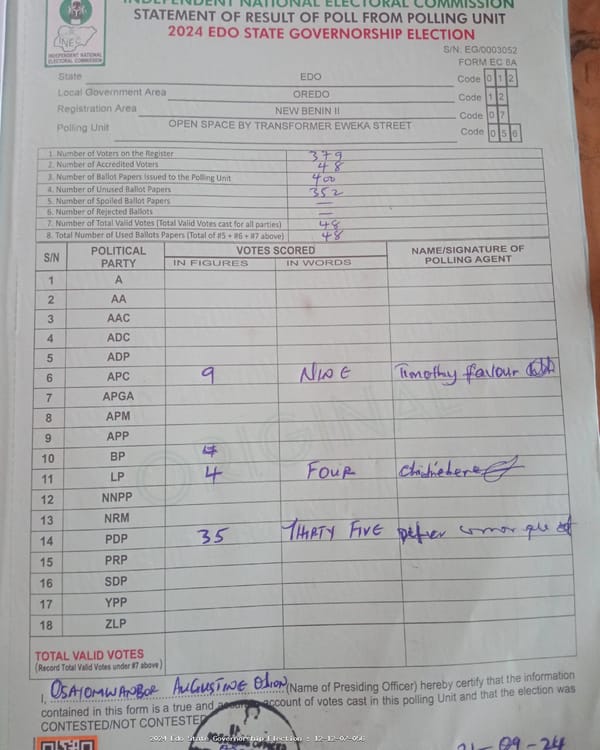 INDEPENDENT NATIONAL ELECTORAL COMMISSION
STATEMENT OF RESULT OF POLL FROM POLLING UNIT
2024 EDO STATE GOVERNORSHIP ELECTION
INEC
INDEPENDENT NATIONAL
ELECTORAL COMMISSION
S/N: EG/0003052
FORM EC 8A
State EDO Code 0 1 2
Local Government Area OREDO Code 1 2
Registration Area NEW BENIN II Code 0 7
Polling Unit OPEN SPACE BY TRANSFORMER EWEKA STREET Code 0 5 6
1. Number of Voters on the Register 379
2. Number of Accredited Voters 48
3. Number of Ballot Papers Issued to the Polling Unit 400
4. Number of Unused Ballot Papers 352
5. Number of Spoiled Ballot Papers —
6. Number of Rejected Ballots —
7. Number of Total Valid Votes (Total Valid Votes cast for all parties) 48
8. Total Number of Used Ballots Papers (Total of #5 + #6 + #7 above) 48
S/N POLITICAL PARTY VOTES SCORED NAME/SIGNATURE OF POLLING AGENT
IN FIGURES IN WORDS
1 A
2 AA
3 AAC
4 ADC
5 ADP
6 APC 9 NINE Timothy favour
7 APGA
8 APM
9 APP
10 BP
11 LP 4 FOUR
12 NNPP
13 NRM
14 PDP 35 THIRTY FIVE
15 PRP
16 SDP
17 YPP
18 ZLP
ORIGINAL
TOTAL VALID VOTES
(Record Total Valid Votes under #7 above)
I, OSAYOMWANBOR AUGUSTINE (Name of Presiding Officer) hereby certify that the information
contained in this form is a true and account of votes cast in this polling Unit and that the election was
CONTESTED/NOT CONTESTED
2024 Edo State Governorship Election : 12-12-07-056
21-09-24